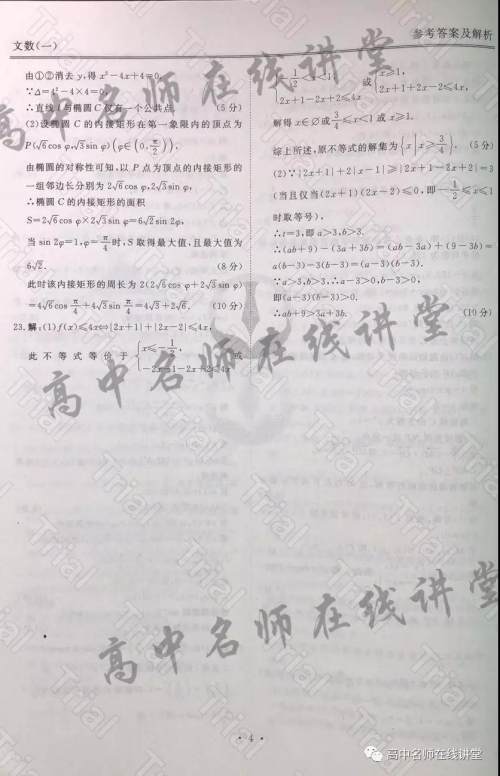 文数(一)
参考答案及解析
由①②消去y,得x²-4x+4=0,
∵Δ=4²-4×4=0,
∴直线l与椭圆C仅有一个公共点. (5分)
(2)设椭圆C的内接矩形在第一象限内的顶点为
P(√6cos φ,√3sin φ)(φ∈(0,π/2)),
由椭圆的对称性可知,以P点为顶点的内接矩形的
一组邻边长分别为2√6cos φ,2√3sin φ,
∴椭圆C的内接矩形的面积
S=2√6cos φ×2√3sin φ=6√2sin 2φ,
当sin 2φ=1,φ=π/4时,S取得最大值,且最大值为
6√2. (8分)
此时该内接矩形的周长为2(2√6cos φ+2√3sin φ)
=4√6cos π/4+4√3sin π/4=4√3+2√6. (10分)
23.解:(1)f(x)≤4x⇔|2x+1|+|2x-2|≤4x,
此不等式等价于{x≤-1/2, -2x-1-2x+2≤4x 或
{-1/2<x<1, 2x+1-2x+2≤4x 或{x≥1, 2x+1+2x-2≤4x,
解得x∈∅或3/4≤x<1或x≥1.
综上所述,原不等式的解集为{x|x≥3/4}. (5分)
(2)∵|2x+1|+2|x-1|≥|2x+1-2x+2|=3
(当且仅当(2x+1)(2x-2)≤0,即-1/2≤x≤1
时取等号),
∴t=3,即a>3,b>3.
∴(ab+9)-(3a+3b)=(ab-3a)+(9-3b)=
a(b-3)-3(b-3)=(a-3)(b-3).
∵a>3,b>3,∴a-3>0,b-3>0,
即(a-3)(b-3)>0.
∴ab+9>3a+3b. (10分)
高中名师在线讲堂
高中名师在线讲堂
高中名师在线讲堂
Trial
Trial
Trial
Trial
Trial
Trial
·4·
高中名师在线讲堂